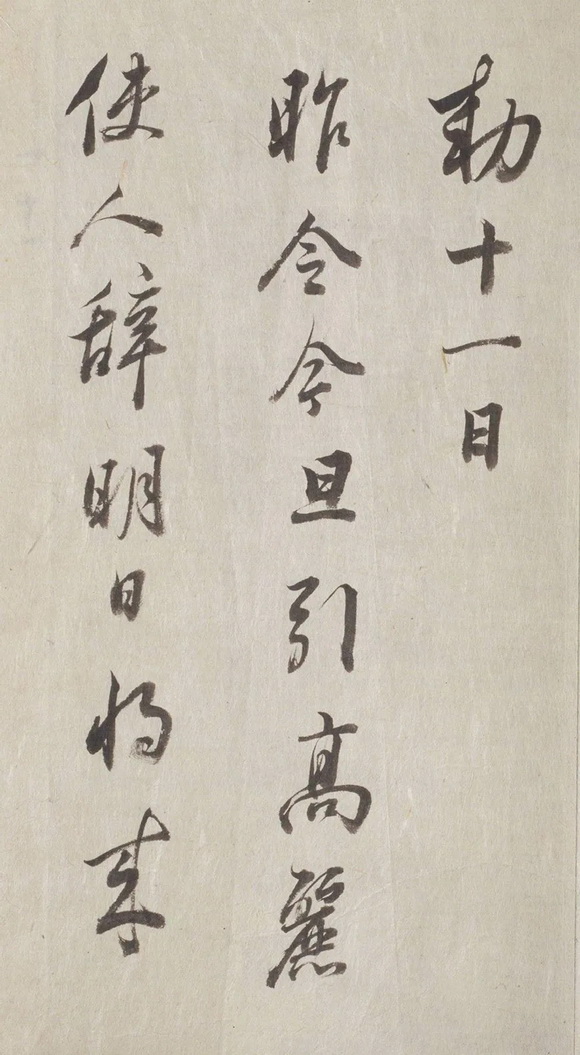 勅十一日
昨令今旦引高麗
使人辞明日将来